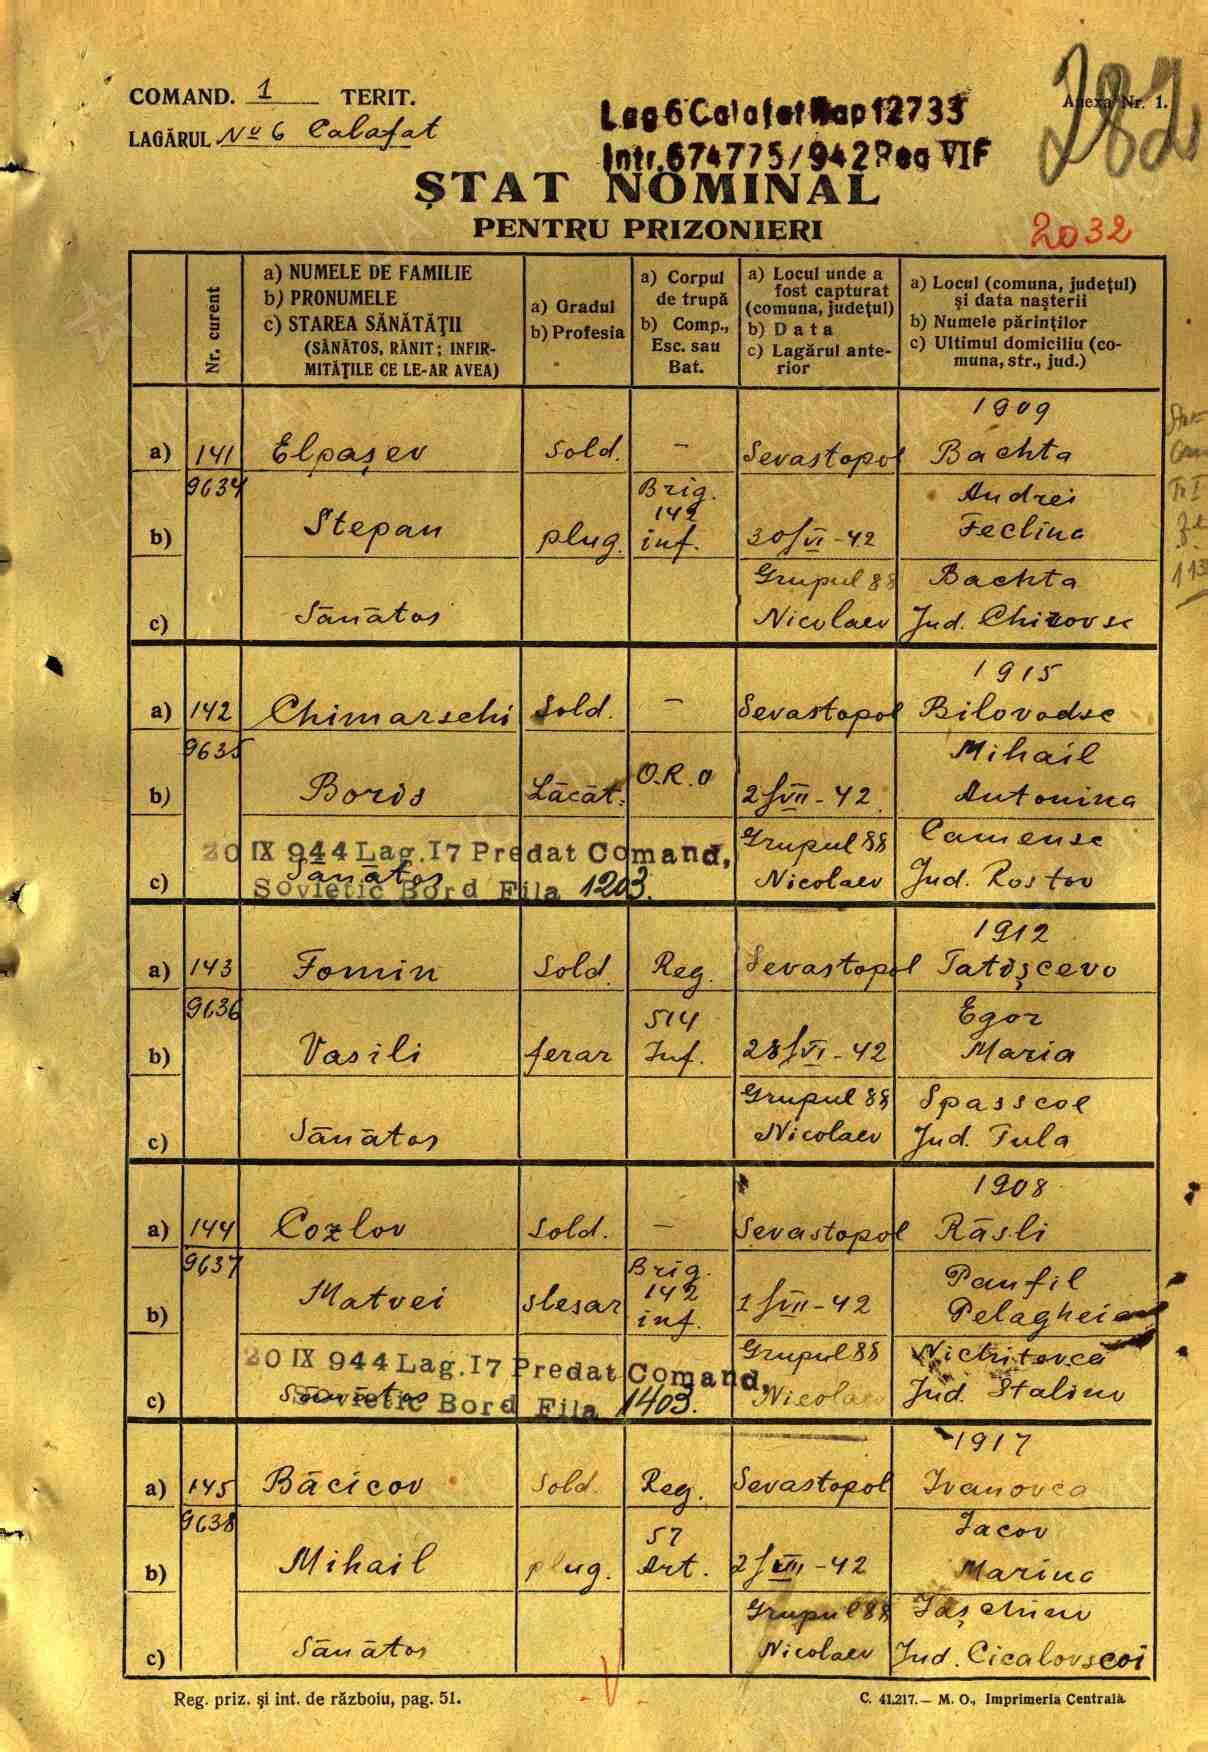 COMAND. 1 TERIT.
LAGĂRUL No 6 Calafat
Lag 6 Calafat Rap 12733
Intr. 674775/942 Reg VIF
Anexa Nr. 1.
282
ȘTAT NOMINAL
PENTRU PRIZONIERI
2032
Nr. curent
a) NUMELE DE FAMILIE
b) PRONUMELE
c) STAREA SĂNĂTĂȚII
(SĂNĂTOS, RĂNIT; INFIR-
MITĂȚILE CE LE-AR AVEA)
a) Gradul
b) Profesia
a) Corpul
de trupă
b) Comp.,
Esc. sau
Bat.
a) Locul unde a
fost capturat
(comuna, județul)
b) Data
c) Lagărul ante-
rior
a) Locul (comuna, județul)
și data nașterii
b) Numele părinților
c) Ultimul domiciliu (co-
muna, str., jud.)
1909
a) 141 Elpașev Sold. — Sevastopol Bachta
9634 Brig. Andrei
142
b) Stepan plug. inf. 30/VI-42 Feclina
Grupul 88 Bachta
c) Sănătos Nicolaev Jud. Chirovsc
1915
a) 142 Chimarschi Sold. — Sevastopol Bilovodsc
9635 Mihail
b) Boris Lăcăt. O.R.O 2/VII-42 Antonina
Grupul 88 Camensc
20 IX 944 Lag. 17 Predat Comand,
c) Sănătos Nicolaev Jud. Rostov
Sovietic Bord Fila 1203.
1912
a) 143 Fomin Sold. Reg. Sevastopol Tatișcevo
9636 514 Egor
b) Vasili ferar Inf. 28/VI-42 Maria
Grupul 88 Spasscoe
c) Sănătos Nicolaev Jud. Tula
1908
a) 144 Cozlov Sold. — Sevastopol Răsli
9637 Brig. Panfil
142
b) Matvei slesar inf. 1/VII-42 Pelagheia
Grupul 88 Nichitovca
20 IX 944 Lag. 17 Predat Comand,
c) Sănătos Nicolaev Jud. Stalino
Sovietic Bord Fila 1403.
1917
a) 145 Băcicov Sold. Reg. Sevastopol Ivanovca
9638 57 Iacov
b) Mihail plug. Art. 2/VII-42 Marina
Grupul 88 Iașchino
c) Sănătos Nicolaev Jud. Cicalovscoi
Reg. priz. și int. de război, pag. 51.
C. 41.217.— M. O., Imprimeria Centrală